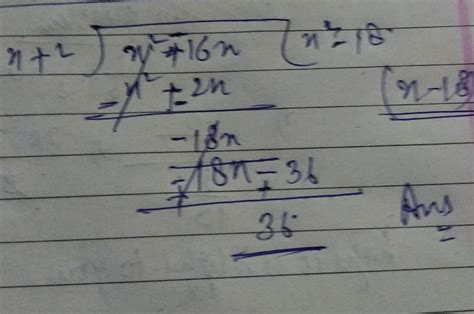 x+2 ) x² - 16x ( x² - 18
- x² + 2x (x-18)
- 18x
- 18x - 36
36 Ans